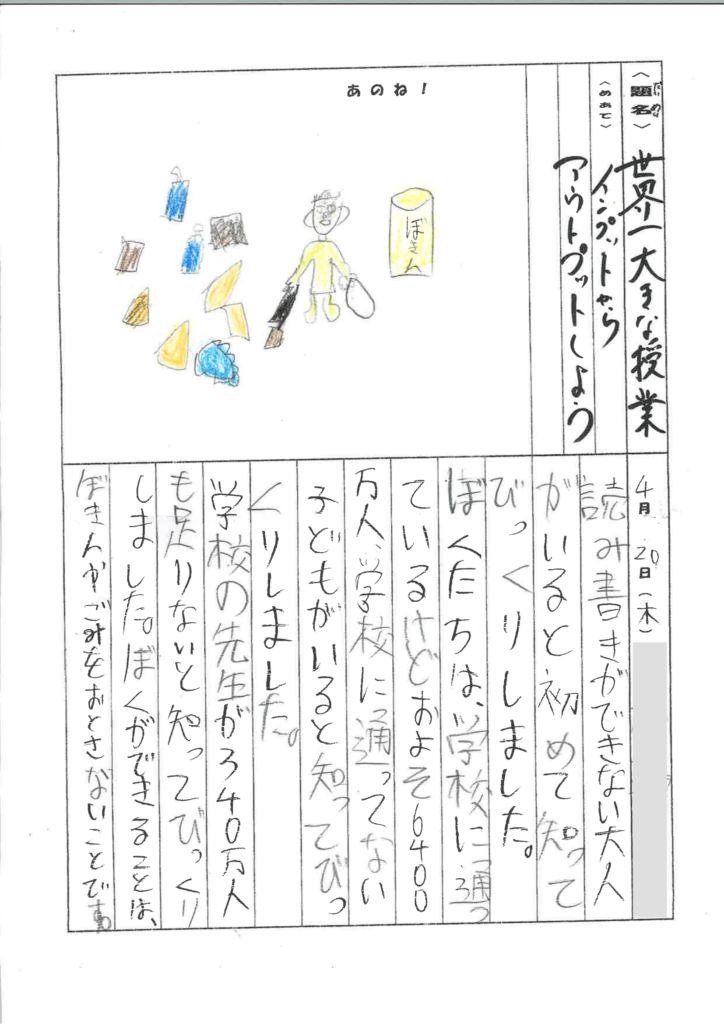 〈題名〉世界一大きな授業
だいめい
〈めあて〉インプットから
アウトプットしよう
あのね！
ぼきん
4月20日（木）
読み書きができない大人
がいると初めて知って
びっくりしました。
ぼくたちは、学校に通っ
ているけどおよそ6400
万人、学校に通ってない
子どもがいると知ってびっ
くりしました。
学校の先生が340万人
も足りないと知ってびっくり
しました。ぼくができることは、
ぼきんかごみをおとさないことです。